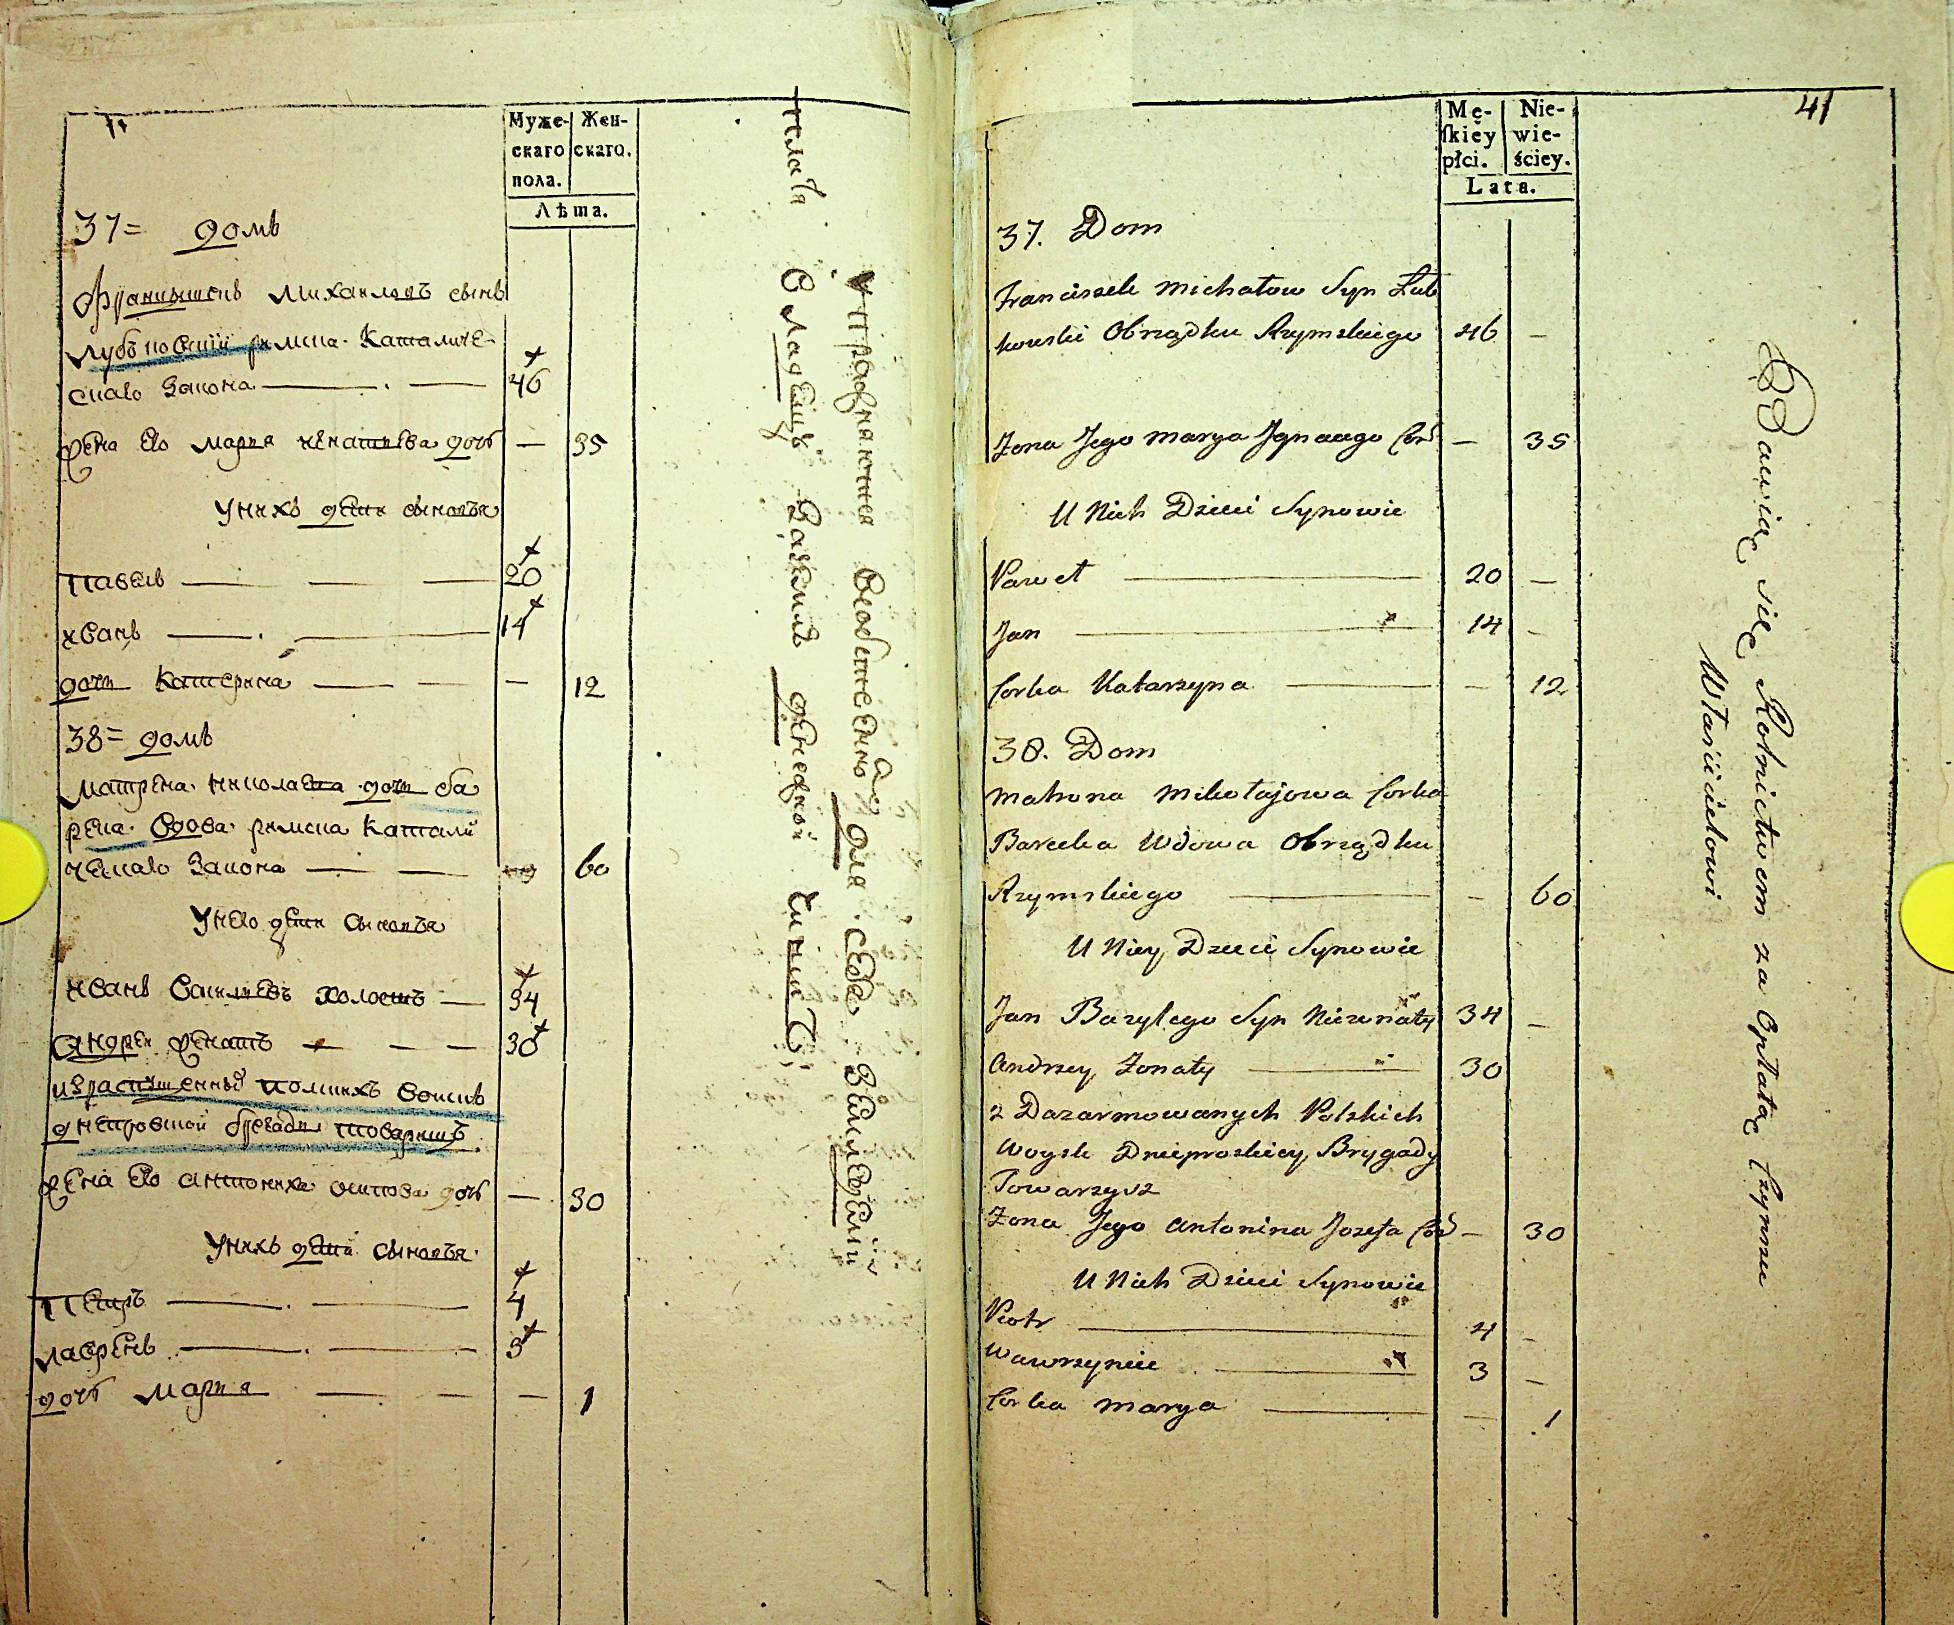 Муже-
скаго
пола.
Жен-
скаго.
Лѣта.
37= домъ
Францышекъ Михаиловъ сынъ
Лубковский римска Каталиче-
скаго Закона 46
Жена Его Мария Игнатиева дочь — 35
У нихъ дети сыновья
Павелъ 20
Иванъ 14
дочь Катерина — 12
38= домъ
Матрена Николаева дочь Ба
река вдова римска Катали
ческаго Закона 60
У нею дети сыновья
Иванъ Василиевъ холостъ 34
Андреи Женатъ 30
израспущенныѣ полскихъ воискъ
днепровской брегады товарышъ
Жена Его Антонина осипова дочь — 30
У нихъ дети сыновья
Петръ 4
Лаврѣнъ 3
дочь Мария — 1
упражняются
для себя Земледелии
Владелцу денежной чиншъ
41
Mę-
ſkiey
płci.
Nie-
wie-
ściey.
Lata.
37. Dom
Franciszek Michałow Syn Łub
kowski Obrządku Rzymskiego 46 —
Żona Jego Marya Jgnacego Cor — 35
U Nich Dzieci Synowie
Paweł 20 —
Jan 14 —
Corka Katarzyna — 12
38. Dom
Matrona Mikołajowa Corka
Bareka Wdowa Obrządku
Rzymskiego — 60
U Niey Dzieci Synowie
Jan Bazylego Syn Nieżonaty 34 —
Andrzey Żonaty 30
z Dazarmowanych Polskich
Woysk Dnieproskiey Brygady
Towarzysz
Żona Jego Antonina Jozefa Cor — 30
U Nich Dzieci Synowie
Piotr 4 —
Wawrzyniec 3 —
Corka Marya — 1
Bawią się Rolnictwem za Opłatą Czynszu
Właścicielowi